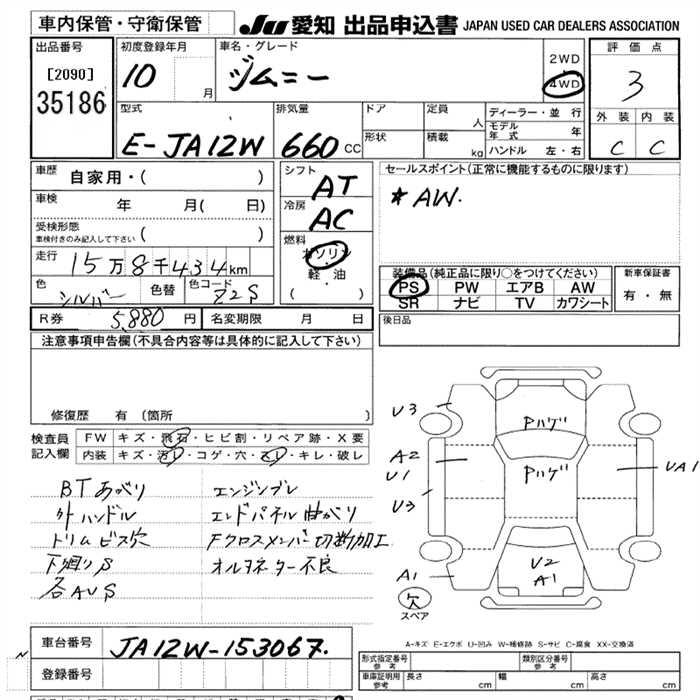 車内保管・守衛保管
JU 愛知 出品申込書 JAPAN USED CAR DEALERS ASSOCIATION
出品番号
[2090]
35186
初度登録年月
10 月
車名・グレード
ジムニー
2WD
4WD
評価点
3
外装 内装
C C
型式
E-JA12W
排気量
660 CC
ドア
形状
定員 人
積載 kg
ディーラー・並行
モデル年式 年
ハンドル 左・右
車歴
自家用・( )
車検
年 月( 日)
受検形態
車検付きのみ記入して下さい ( )
走行
15万8千434km
色
シルバー
色替
色コード
Z2S
シフト
AT
冷房
AC
燃料
ガソリン
軽・油
( )
セールスポイント(正常に機能するものに限ります)
* AW.
装備品(純正品に限り○をつけてください)
PS PW エアB AW
SR ナビ TV カワシート
新車保証書
有・無
後日品
R券 5,880 円
名変期限 月 日
注意事項申告欄(不具合内容等は具体的に記入して下さい)
修復歴 有(箇所 )
検査員記入欄
FW キズ・飛石・ヒビ割・リペア跡・X要
内装 キズ・汚レ・コゲ・穴・スレ・キレ・破レ
BTあがり
外ハンドル
トリムビス欠
下廻りS
各AUS
エンジンブレ
エンドパネル曲がり
Fクロスメンバー切断加工
オルタネター不良
U3
A2
U1
U3
A1
Pハゲ
Pハゲ
UA1
U2
A1
欠
スペア
A-キズ E-エクボ U-凹み W-補修跡 S-サビ C-腐食 XX-交換済
車台番号
JA12W-153067.
登録番号
形式指定番号
参考
類別区分番号
参考
車庫証明用
参考
長さ cm
幅 cm
高さ cm